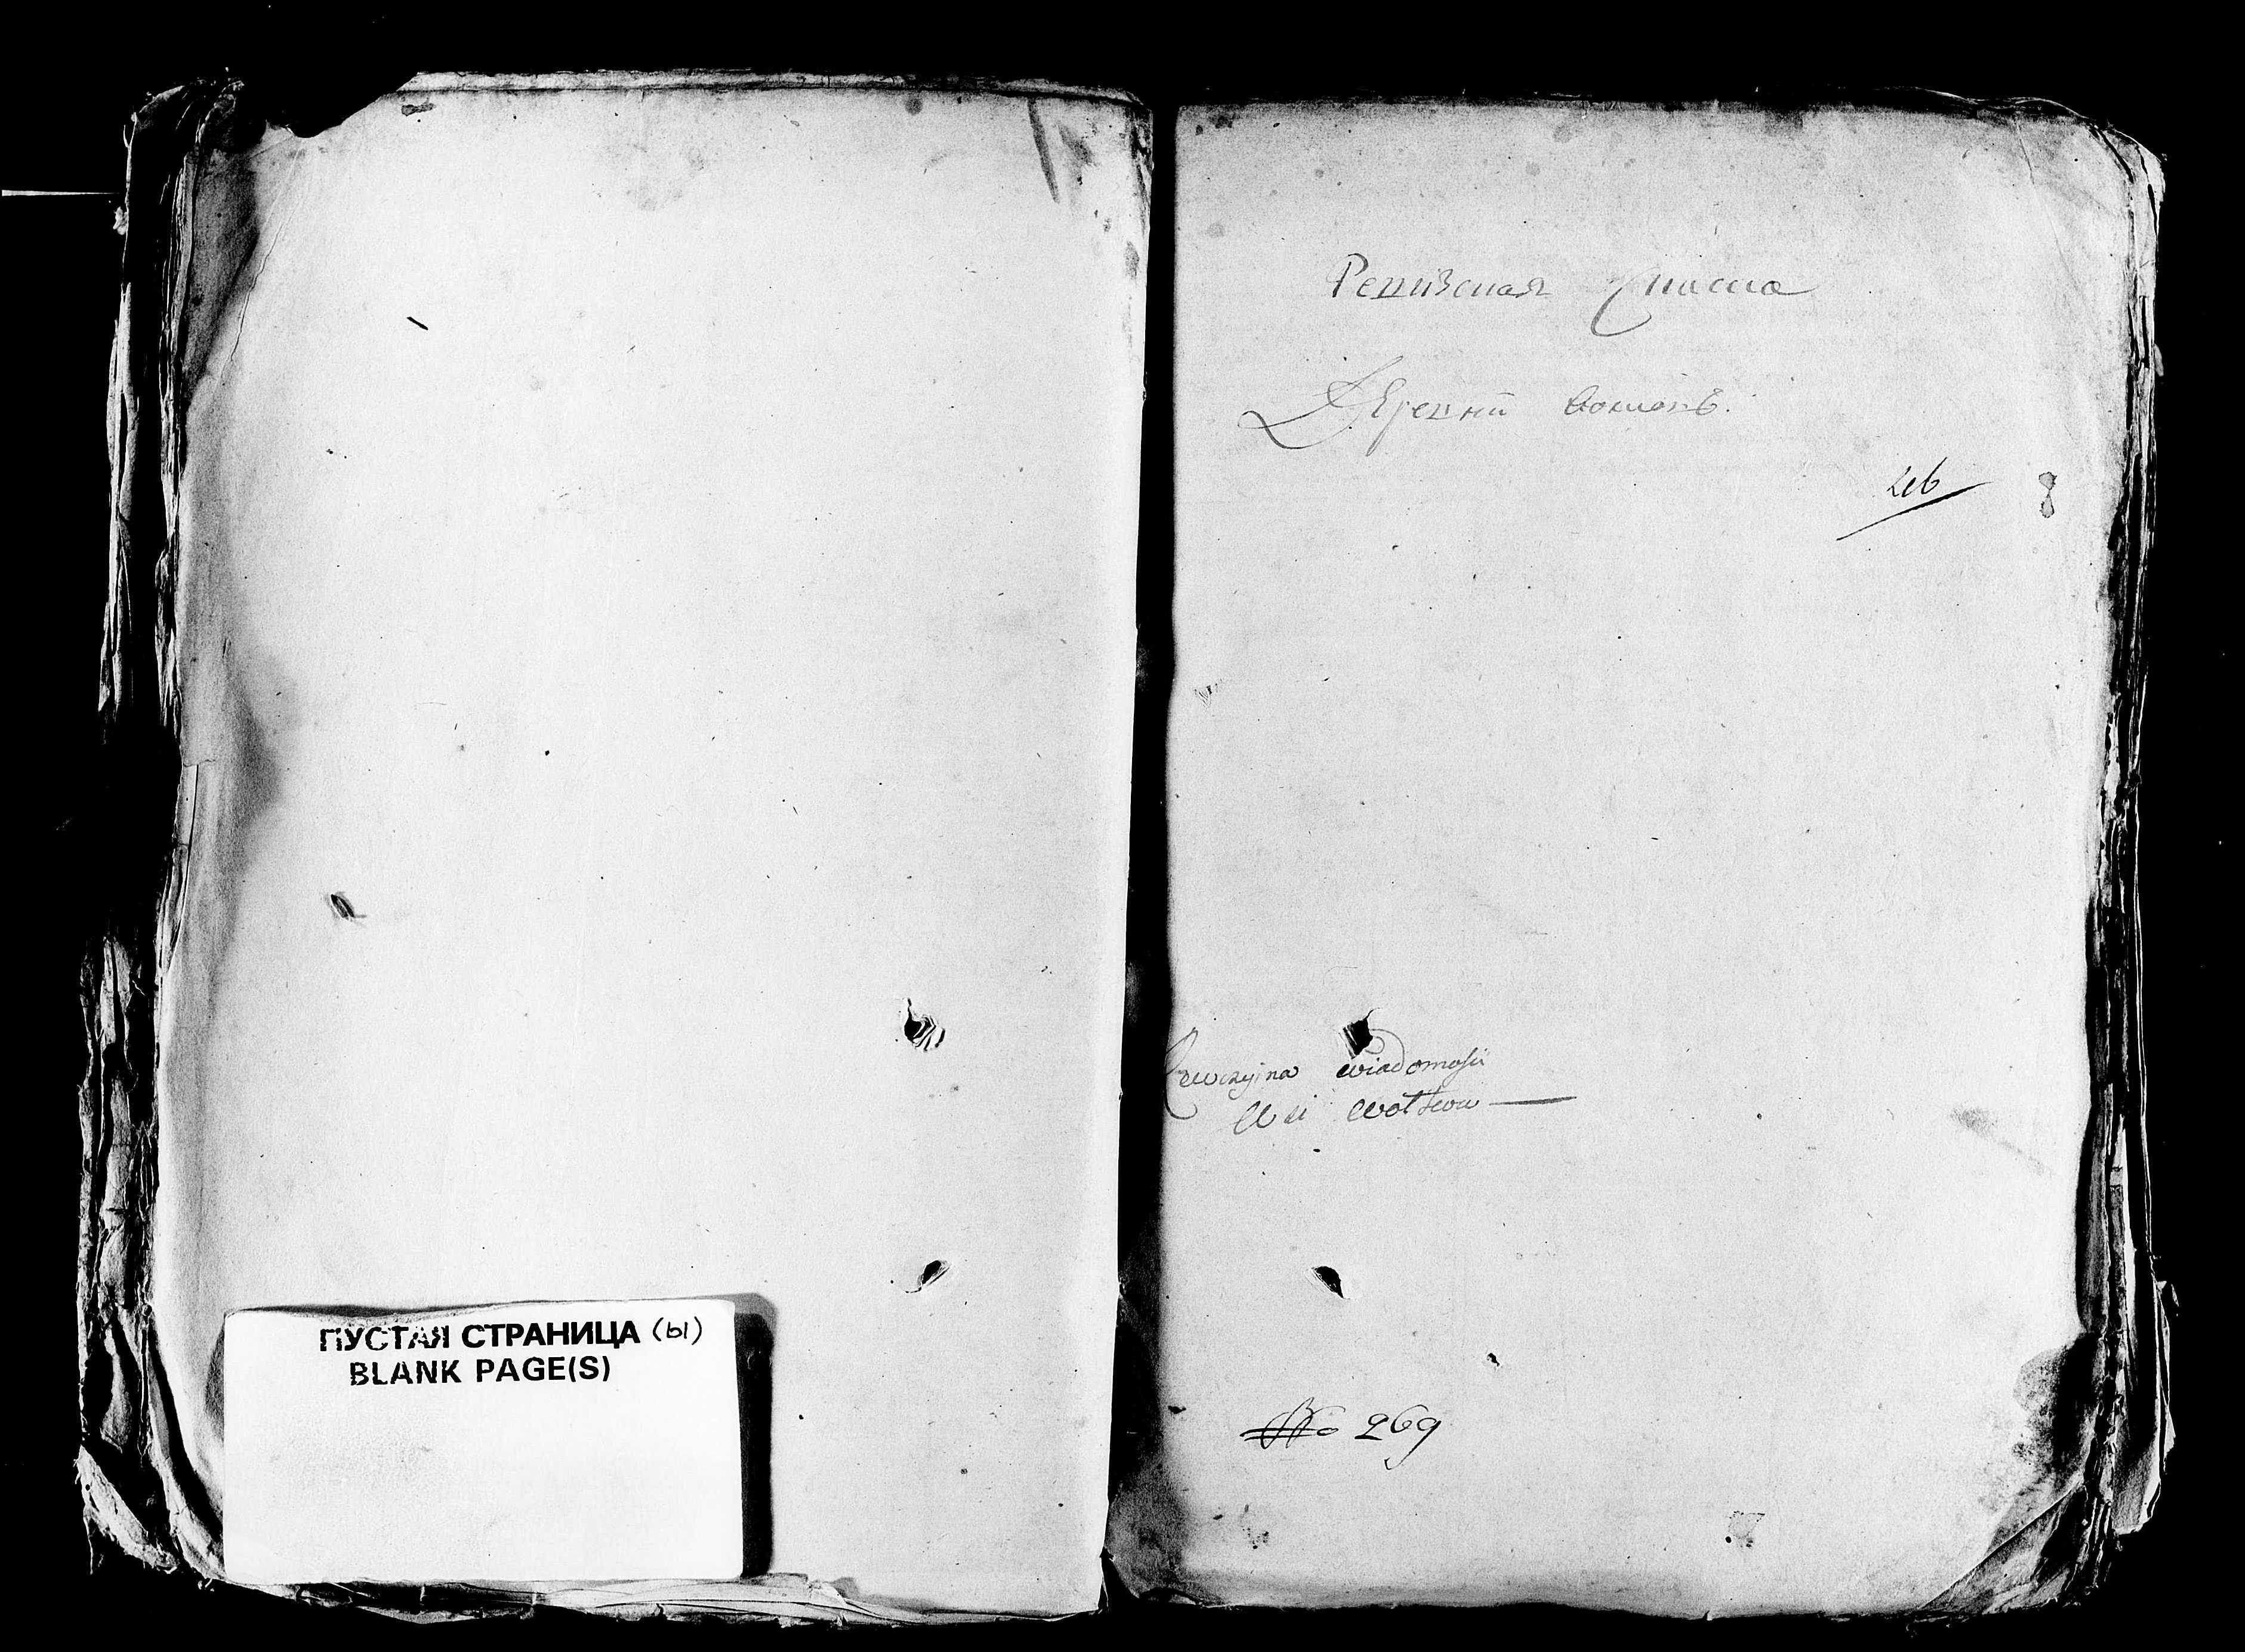 ПУСТАЯ СТРАНИЦА (ы)
BLANK PAGE(S)
Ревизская Сказка
Деревни
8
Rewizyjna wiadomość
Wsi
No 269